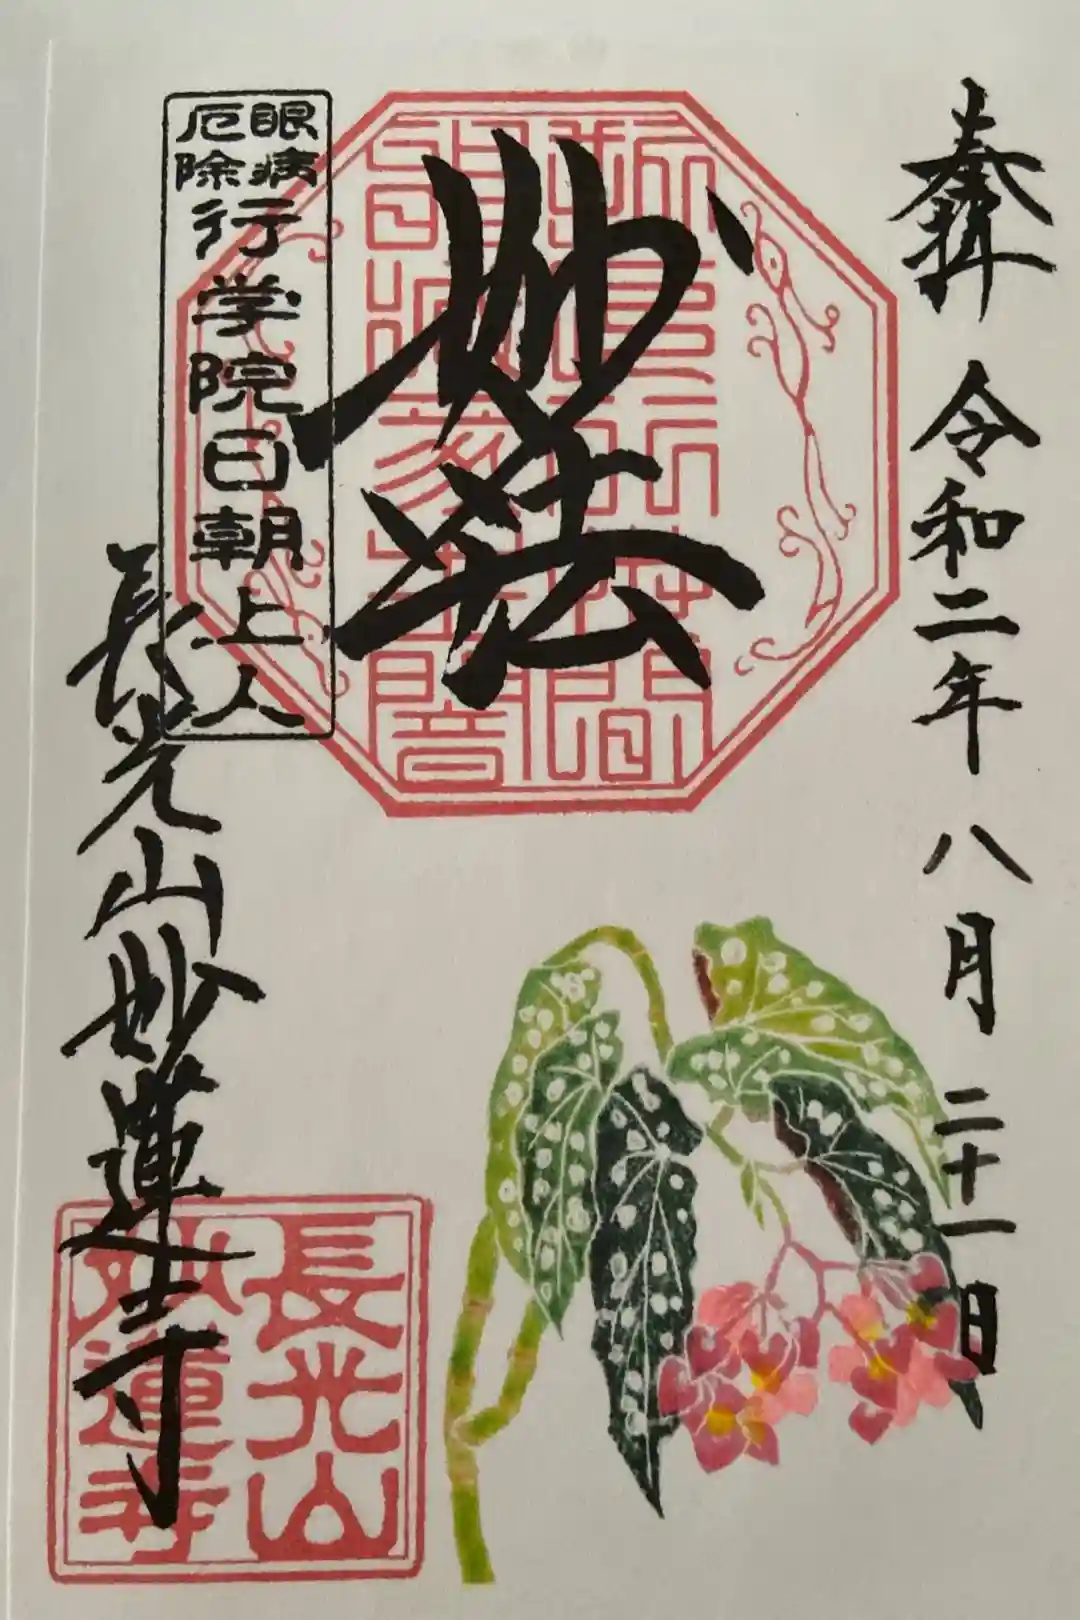 奉拝 令和二年 八月 二十一日
妙法
眼病
厄除
行学院日朝上人
長光山妙蓮寺
長光山
妙蓮寺